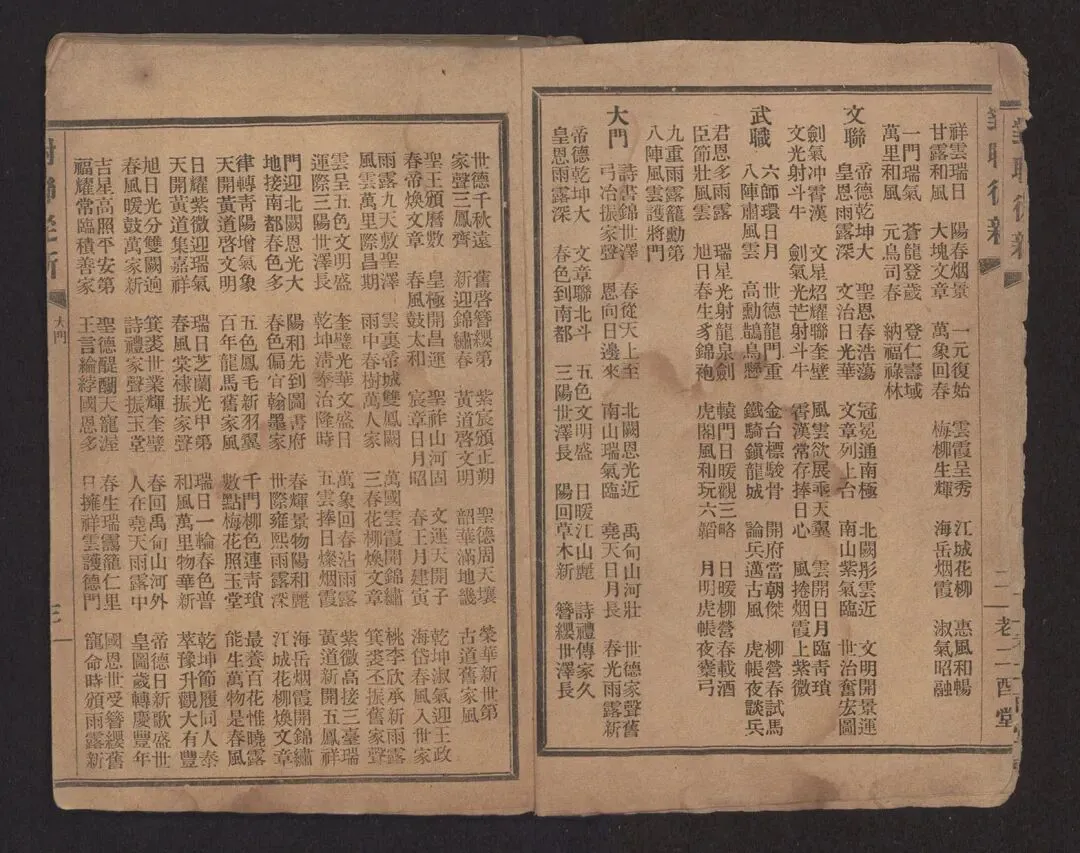 對聯從新
二
老二酉堂
祥雲瑞日　陽春烟景　一元復始　雲霞呈秀　江城花柳　惠風和暢
甘露和風　大塊文章　萬象回春　梅柳生輝　海岳烟霞　淑氣昭融
一門瑞氣　蒼龍登歲　登仁壽域
萬里和風　元鳥司春　納福祿林
文聯　帝德乾坤大　聖恩春浩蕩　冠冕通南極　北闕彤雲近　文明開景運
皇恩雨露深　文治日光華　文章列上台　南山紫氣臨　世治奮宏圖
劍氣冲霄漢　文星炤耀聯奎壁　風雲欲展乘天翼　雲開日月臨青瑣
文光射斗牛　劍氣光芒射斗牛　霄漢常存捧日心　風捲烟霞上紫微
武職　六師環日月　世德龍門重　金台標駿骨　開府當朝傑　柳營春試馬
八陣肅風雲　高勳鵲鳥懸　鐵騎鎮龍城　論兵邁古風　虎帳夜談兵
君恩多雨露　瑞星光射龍泉劍　轅門日暖觀三略　日暖柳營春載酒
臣節壯風雲　旭日春生豸錦袍　虎閣風和玩六韜　月明虎帳夜櫜弓
九重雨露籠勳第
八陣風雲護將門
大門　詩書錦世澤　春從天上至　北闕恩光近　禹甸山河壯　世德家聲舊
弓冶振家聲　恩向日邊來　南山瑞氣臨　堯天日月長　春光雨露新
帝德乾坤大　文章聯北斗　五色文明盛　日暖江山麗　詩禮傳家久
皇恩雨露深　春色到南都　三陽世澤長　陽回草木新　簪纓世澤長
世德千秋遠　舊啓簪纓第　紫宸頒正朔　聖德周天壤　榮華新世第
家聲三鳳齊　新迎錦繡春　黃道啓文明　韶華滿地畿　古道舊家風
聖王頒曆數　皇極開昌運　聖祚山河固　文運天開子　乾坤淑氣迎王政
春帝煥文章　春風鼓太和　宸章日月昭　春王月建寅　海岱春風入世家
雨露九天敷聖澤　雲裏帝城雙鳳闕　萬國雲霞開錦繡　桃李欣承新雨露
風雲萬里際昌期　雨中春樹萬人家　三春花柳煥文章　箕裘丕振舊家聲
雲呈五色文明盛　奎璧光華文盛日　萬象回春沾雨露　紫微高接三臺瑞
運際三陽世澤長　乾坤淸奉治隆時　五雲捧日燦烟霞　黃道新開五鳳祥
門迎北闕恩光大　陽和先到圖書府　春輝景物陽和麗　海岳烟霞開錦繡
地接南都春色多　春色偏宜翰墨家　世際雍熙雨露深　江城花柳煥文章
律轉青陽增氣象　五色鳳毛新羽翼　千門柳色連青瑣　最養百花惟曉露
天開黃道啓文明　百年龍馬舊家風　數點梅花照玉堂　能生萬物是春風
日耀紫微迎瑞氣　瑞日芝蘭光甲第　瑞日一輪春色普　乾坤節履同人泰
天開黃道集嘉祥　春風棠棣振家聲　和風萬里物華新　萃豫升觀大有豐
旭日光分雙闕逈　箕裘世業輝奎璧　春回禹甸山河外　帝德日新歌盛世
春風暖鼓萬家新　詩禮家聲振玉堂　人在堯天雨露中　皇圖歲轉慶豐年
吉星高照平安第　聖德醍醐天寵渥　春生瑞靄籠仁里　國恩世受簪纓舊
福耀常臨積善家　王言綸綍國恩多　日擁祥雲護德門　寵命時頒雨露新
大門
三